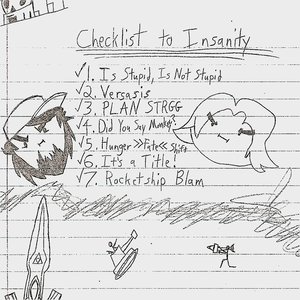 Checklist to Insanity
✓1. Is Stupid, Is Not Stupid
✓2. Versasis
✓3. PLAN STRGG
✓4. Did You Say Monkey?
✓5. Hunger »Fate« Shift
✓6. It's a Title!
✓7. Rocketship Blam